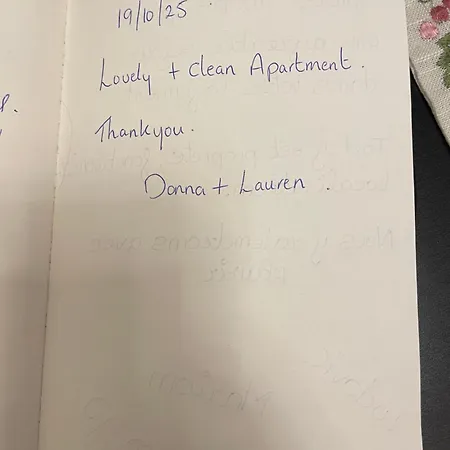 19/10/25
Lovely + Clean Apartment.
Thankyou.
Donna + Lauren.